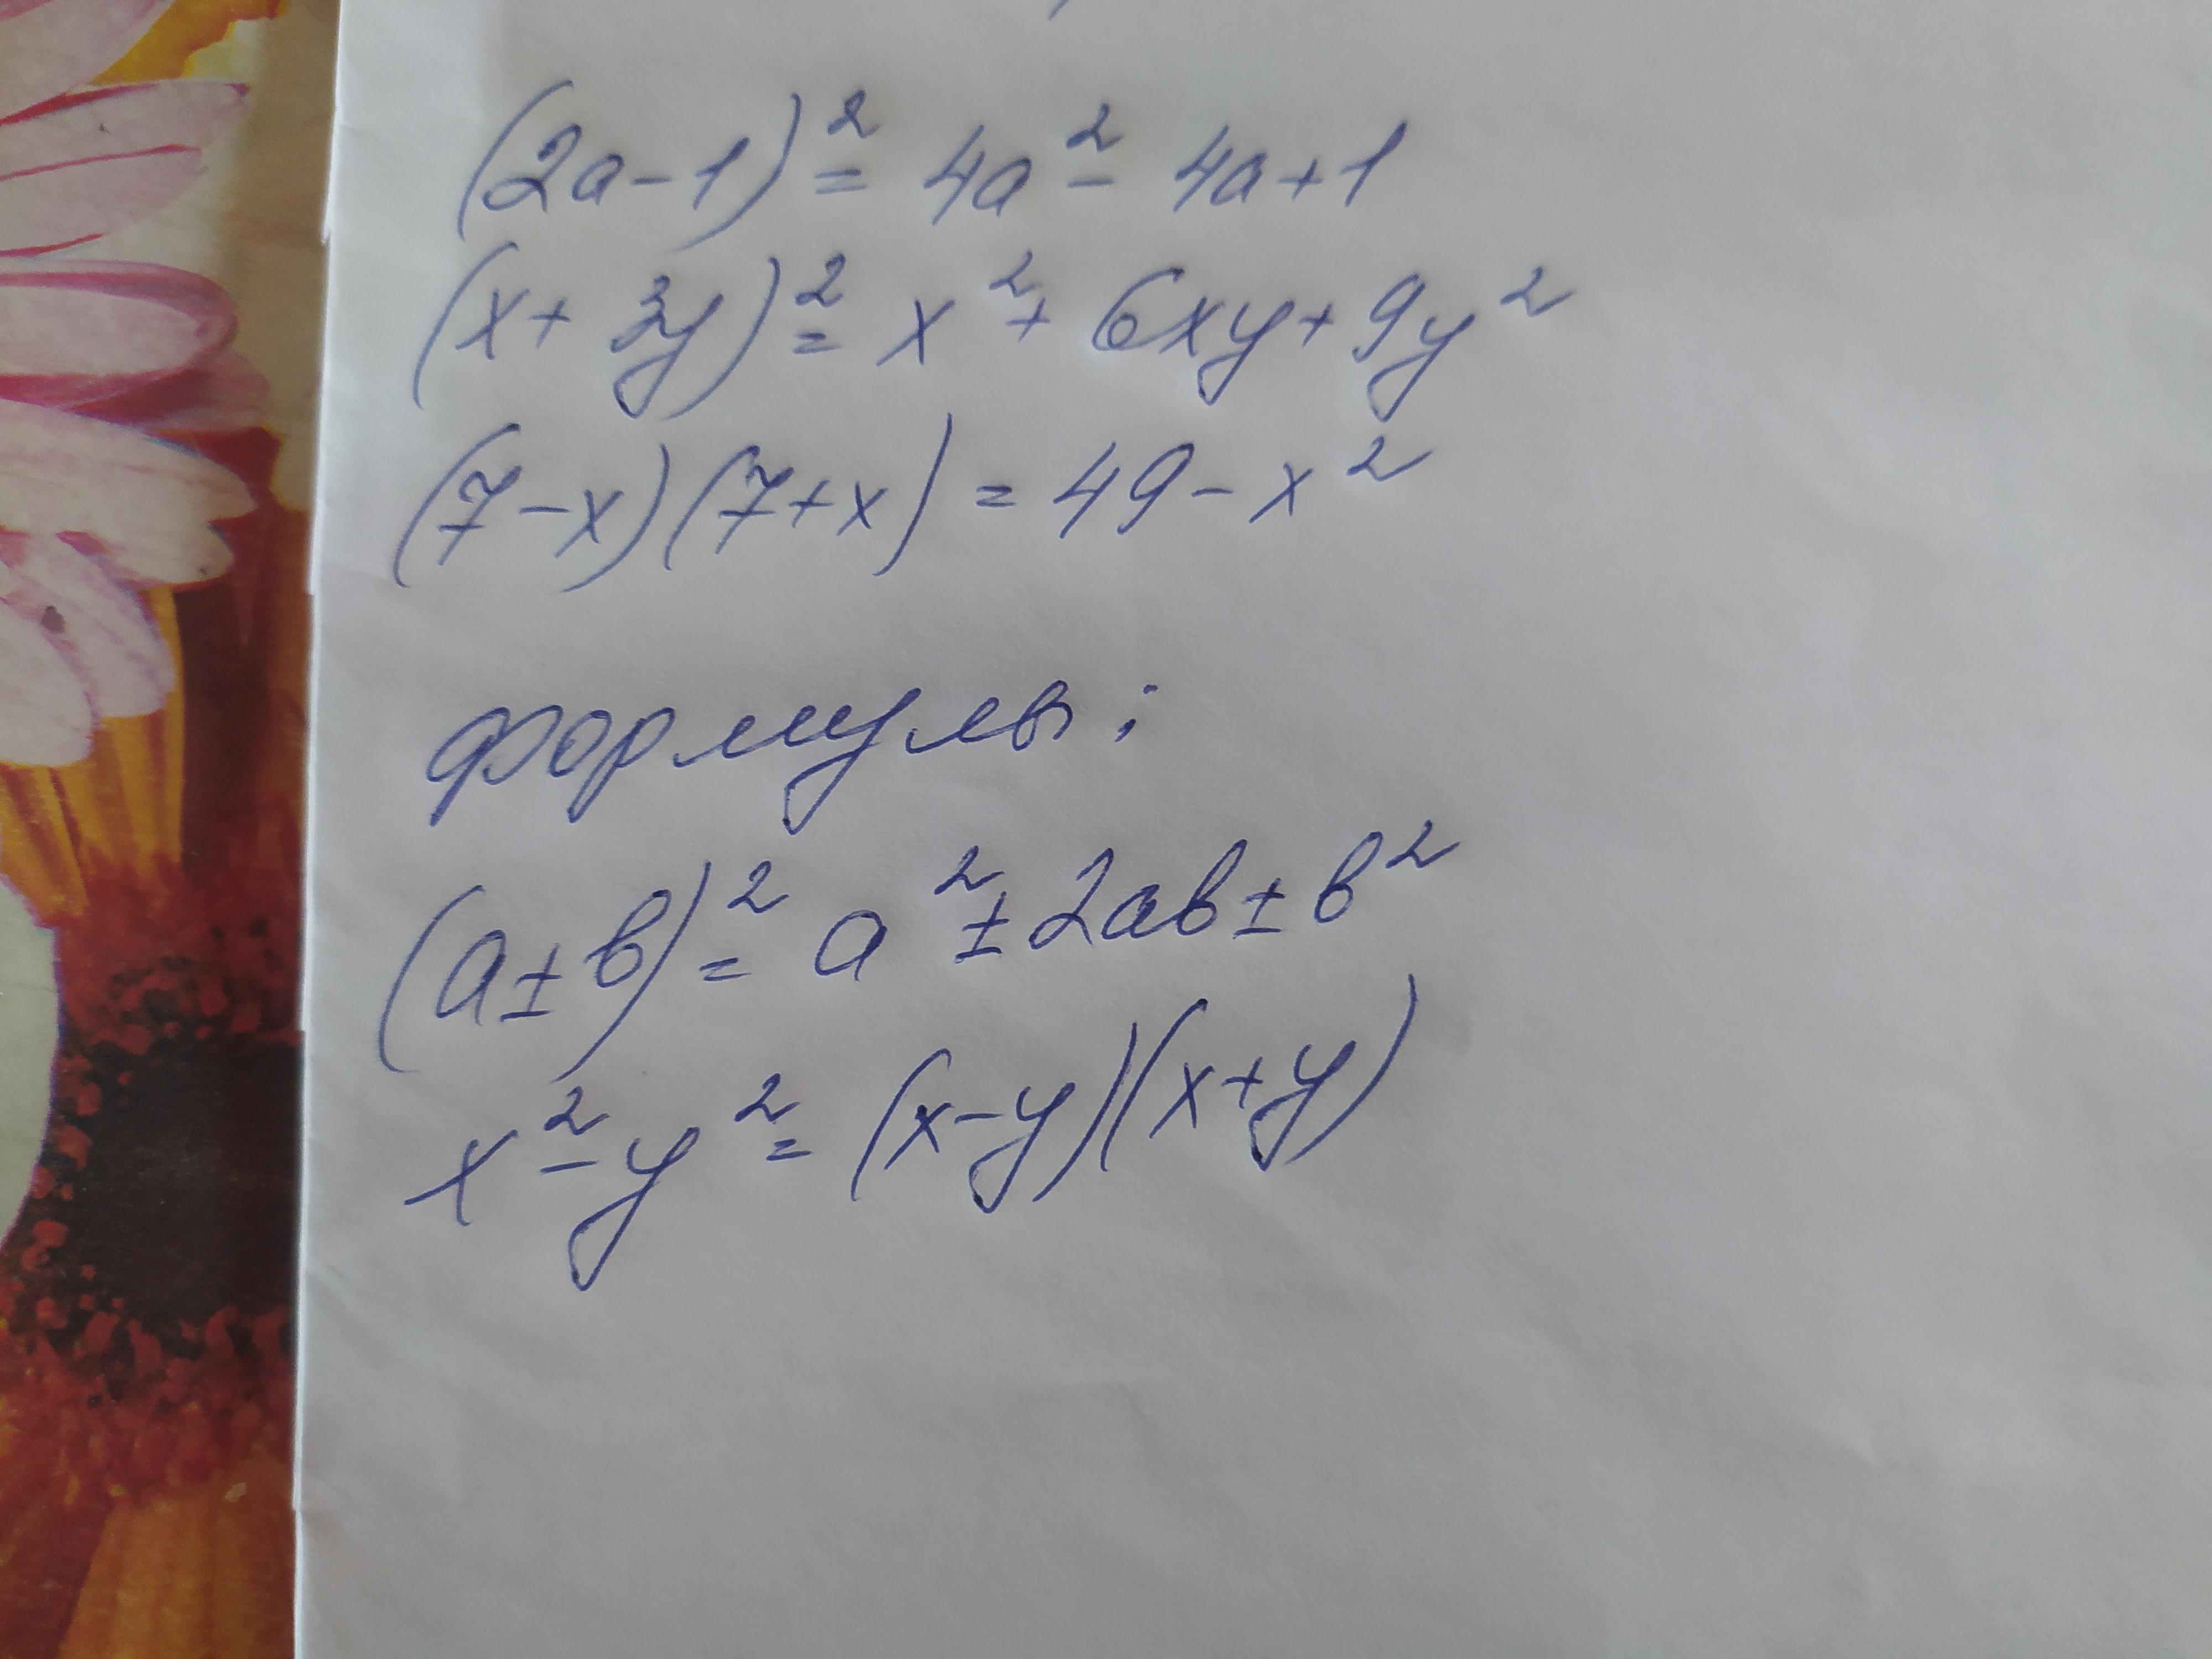 (2a-1)²= 4a²- 4a+1
(x+ 3y)²= x²+ 6xy+9y²
(7-x)(7+x) = 49-x²
формулы:
(a±b)²= a²±2ab±b²
x²-y²= (x-y)(x+y)